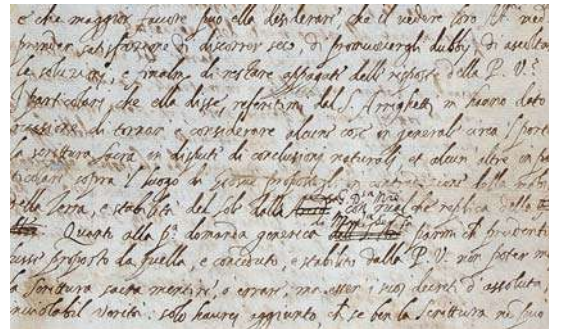 e che maggior favore può ella desiderare, che il vedere loro Alt. med
prender satisfazione di discorrer seco, di promuovergli dubbj, di ascolta
le soluzioni, e finalm. di restare appagati delle risposte della P. V.ª
I particolari, che ella disse, referitimi dal S. Arrighetti, m'hanno dato
occasione di tornar a considerare alcune cose in generale circa 'l porta
la scrittura sacra in dispute di conclusioni naturali, et alcun altre in pa
ticolari sopra 'l luogo di Giosue propostoli in contradizione della mobi
della Terra, e stabilità del sole dalla che replica della
Quanto alla p.ª domanda generica parmi ch prudentis
fusse proposto da quella, e conceduto, e stabilito dalla P. V. non poter m
la Scrittura sacra mentire, o errare, ma esser i suoi decreti d'assoluta,
inviolabil verità: solo haurei aggiunto, ch se ben la Scrittura nō può